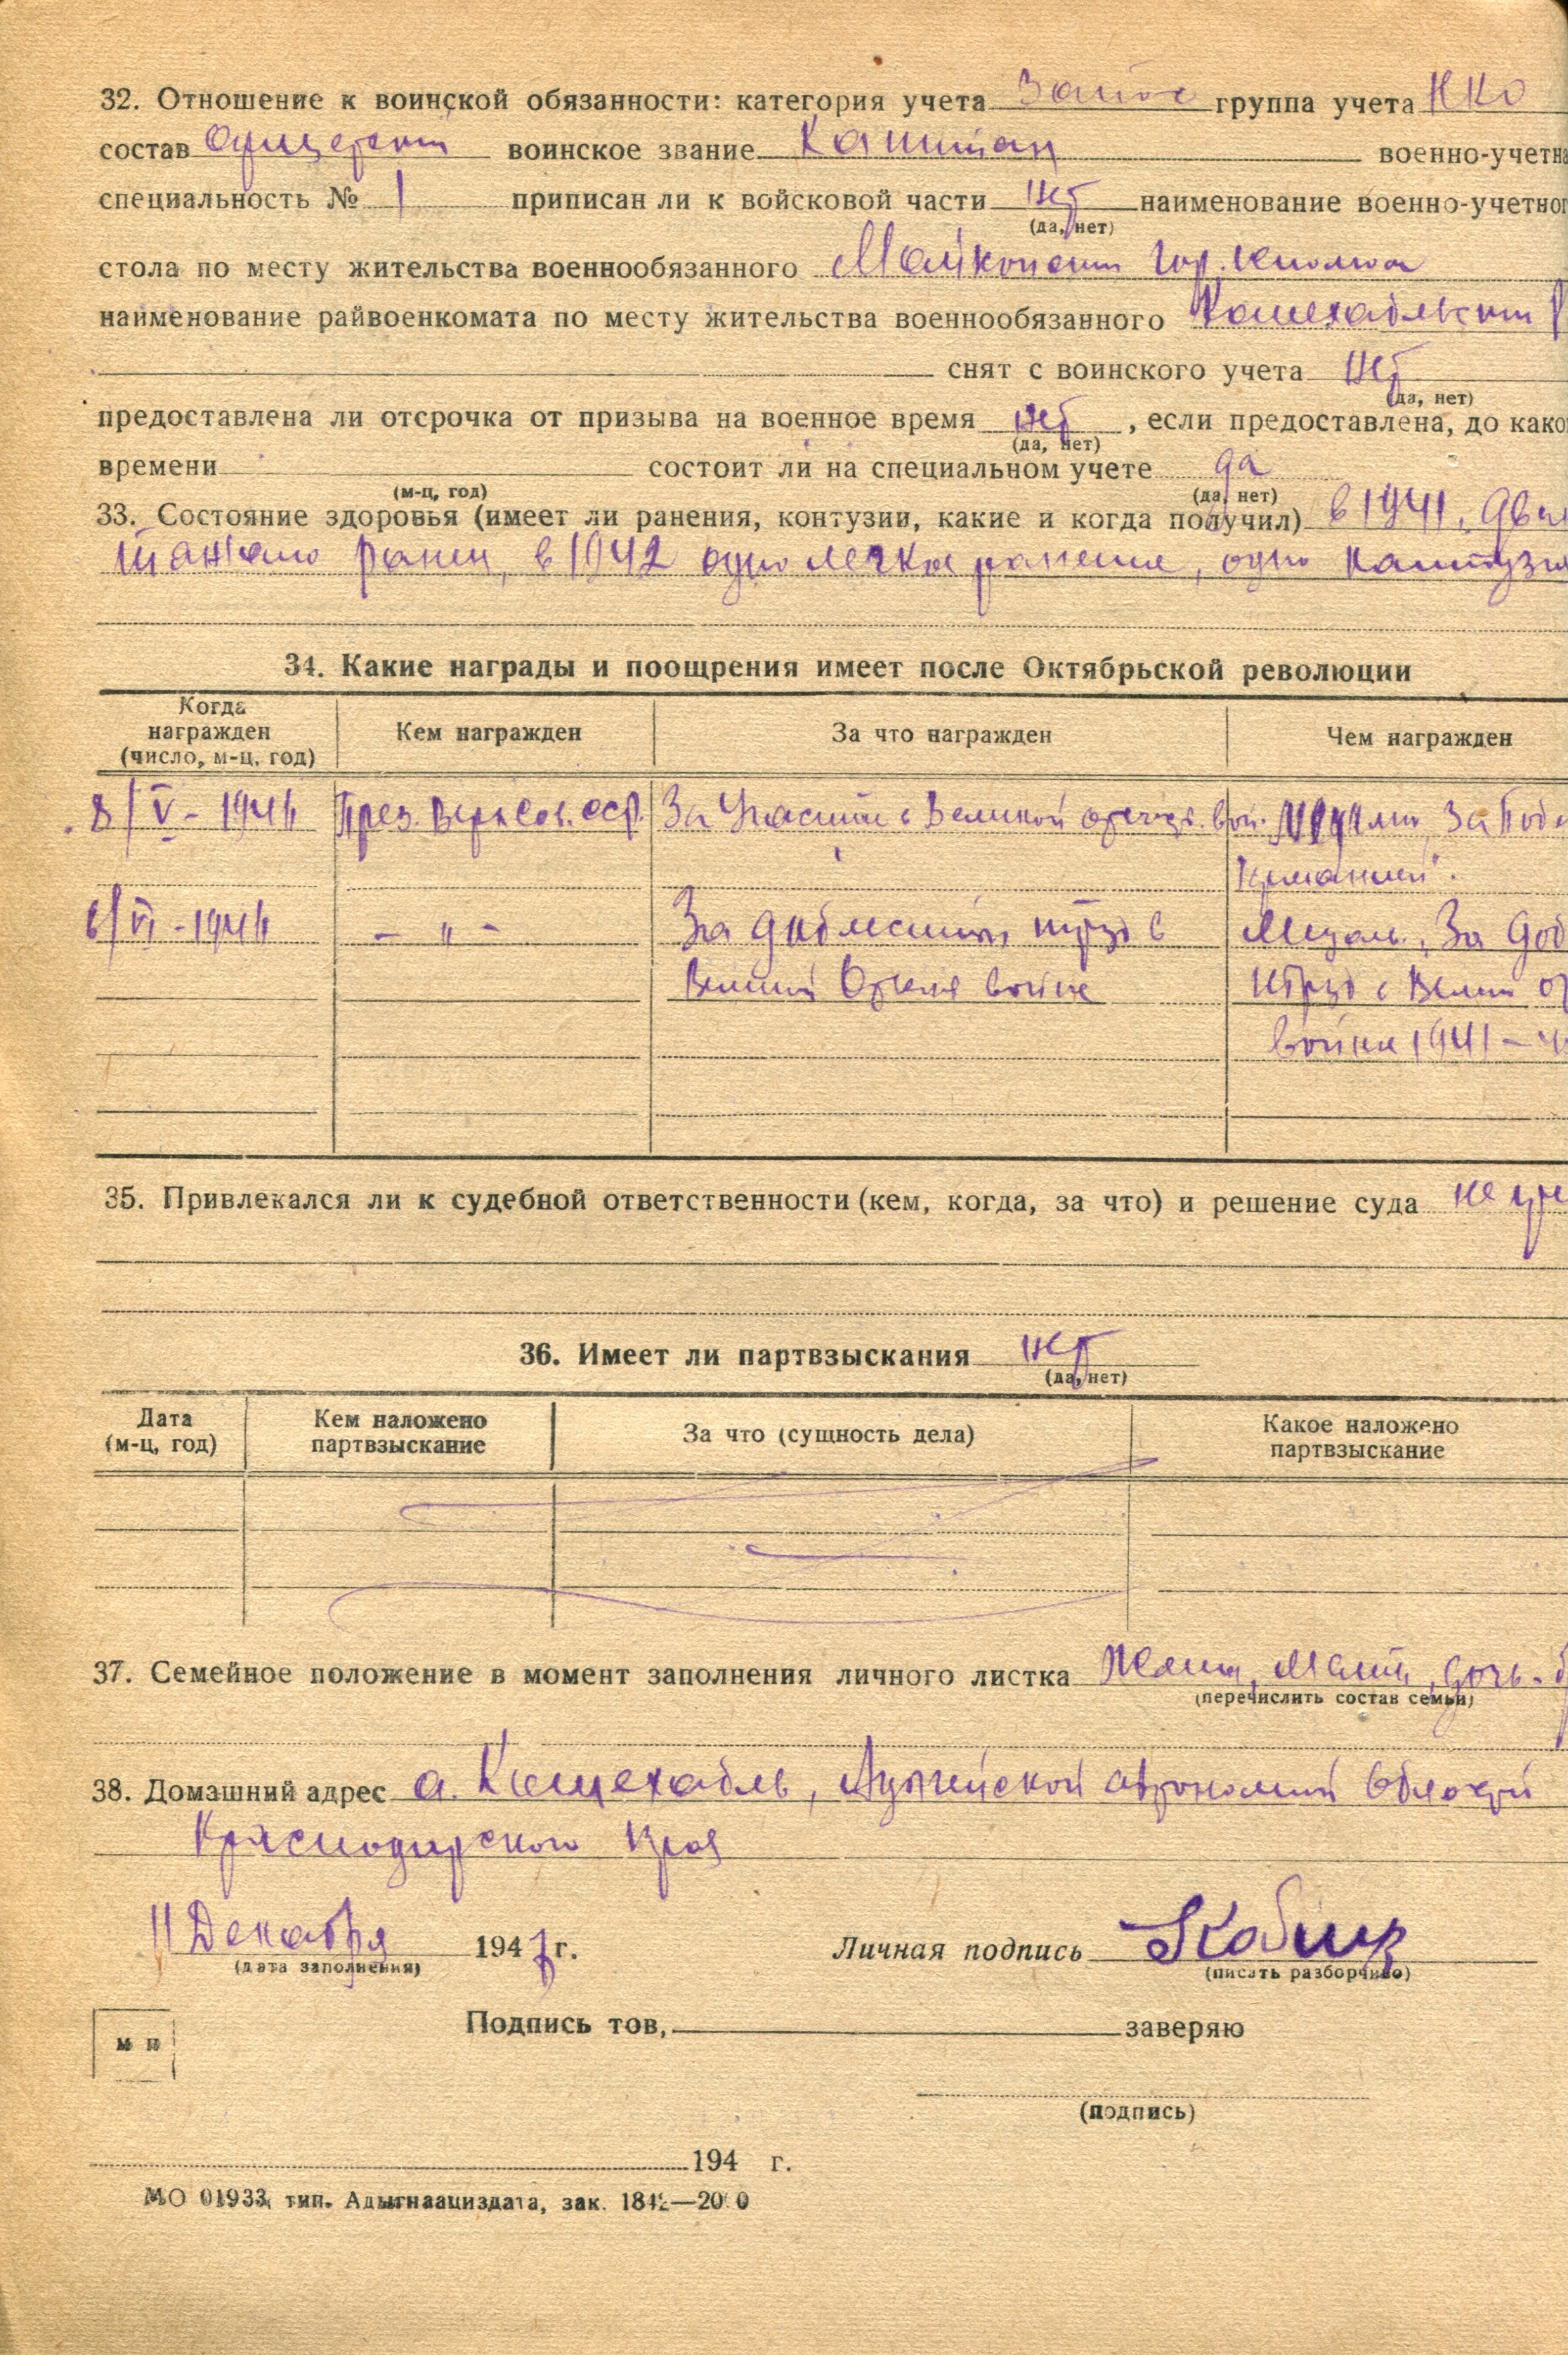 32. Отношение к воинской обязанности: категория учета Запас группа учета ККО
состав Офицерский воинское звание Капитан военно-учетна
специальность № 1 приписан ли к войсковой части нет наименование военно-учетног
(да, нет)
стола по месту жительства военнообязанного Майкопский Гор.
наименование райвоенкомата по месту жительства военнообязанного Кошехабльский
снят с воинского учета нет
(да, нет)
предоставлена ли отсрочка от призыва на военное время нет, если предоставлена, до како
(да, нет)
времени состоит ли на специальном учете да
(м-ц, год) (да, нет)
33. Состояние здоровья (имеет ли ранения, контузии, какие и когда получил) в 1941,
тяжело ранен, в 1942 одно легкое ранение, одно контузия
34. Какие награды и поощрения имеет после Октябрьской революции
Когда награжден (число, м-ц, год) Кем награжден За что награжден Чем награжден
8/V-1946 През. Верх. Сов. ССР. За участии в Великой отечеств. вой. За Поб
Германией".
6/VI-1946 - " - За доблестный труд в Медаль "За доб
Великой Отечес войне труд в Велик от
войне 1941-4
35. Привлекался ли к судебной ответственности (кем, когда, за что) и решение суда не
36. Имеет ли партвзыскания нет
(да, нет)
Дата (м-ц, год) Кем наложено партвзыскание За что (сущность дела) Какое наложено партвзыскание
37. Семейное положение в момент заполнения личного листка Жена, Мать, дочь-
(перечислить состав семьи)
38. Домашний адрес а. Кошехабль, Адыгейской автономной области
Краснодарского края
11 Декабря 1947 г. Личная подпись
(дата заполнения) (писать разборчиво)
Подпись тов, заверяю
м п
(подпись)
194 г.
МО 01933, тип. Адыгнаациздата, зак. 1842—2000